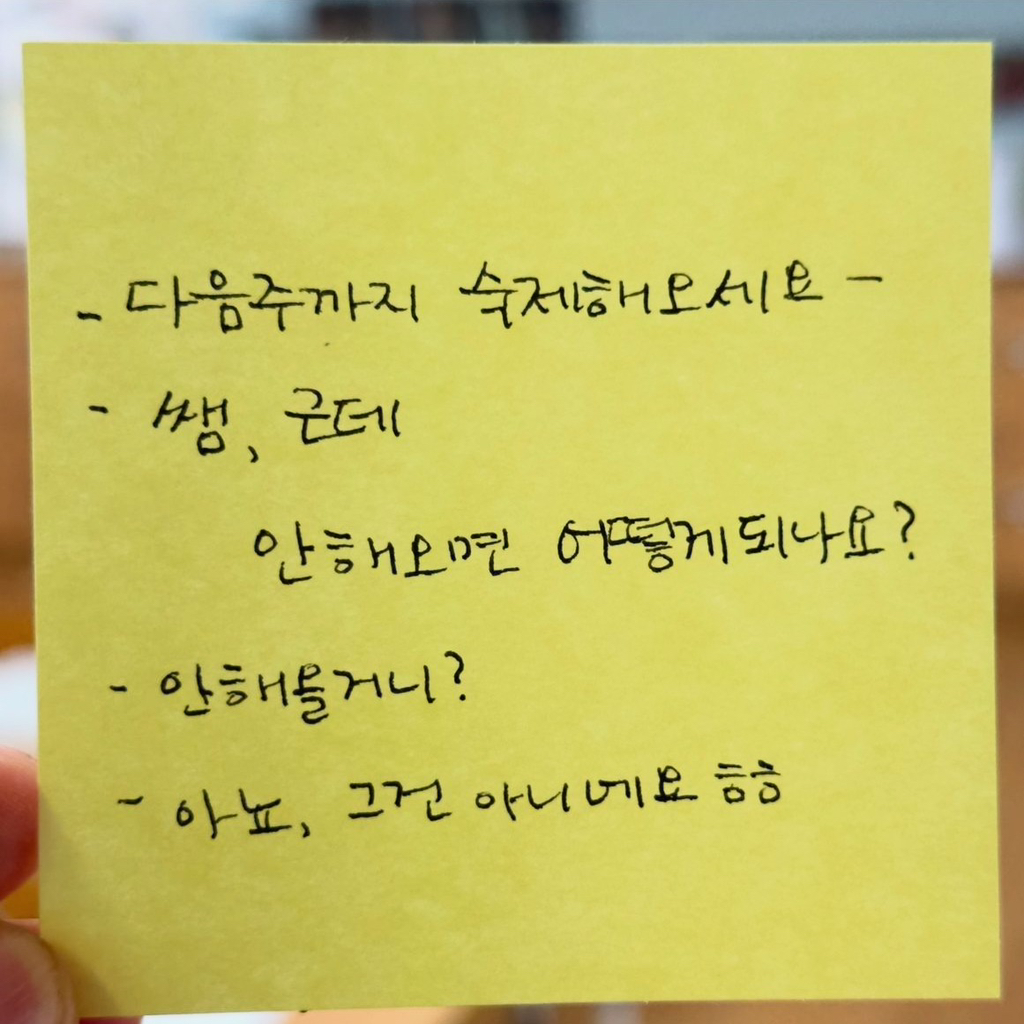 - 다음주까지 숙제해오세요 -
- 쌤, 근데
안해오면 어떻게되나요?
- 안해올거니?
- 아뇨, 그건 아니네요 흐흐